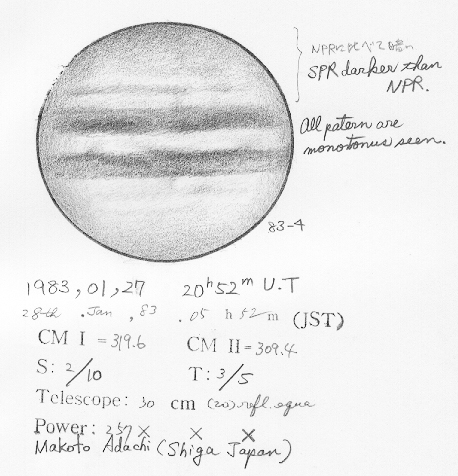 NPRに比べて暗い
SPR darker than
NPR.
All patern are
monotonus seen.
83-4
1983, 01, 27 20h52m U.T
28th . Jan , 83 . 05 h 52 m (JST)
CM I = 319.6 CM II = 309.4
S: 2/10 T: 3/5
Telescope: 30 cm (20) refl. equa
Power: 257× × ×
Makoto Adachi (Shiga Japan)